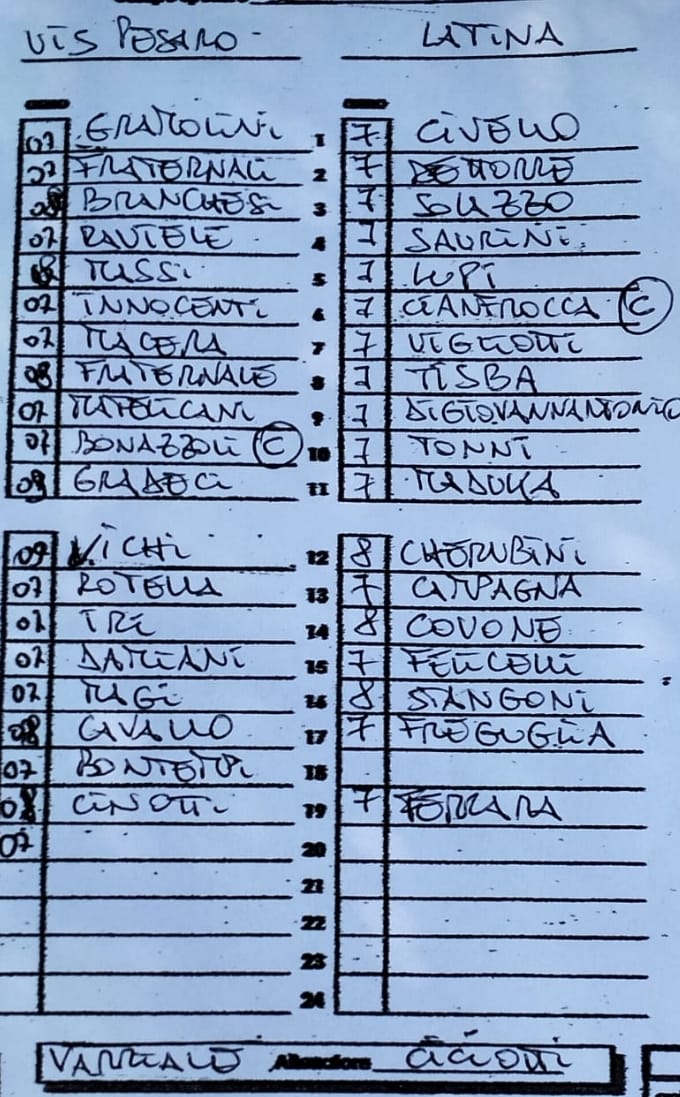 VIS PESARO - LATINA
07 GRATOLINI 1 7 CIVELLO
07 FRATERNALI 2 7 DETTORRE
08 BRANCHESI 3 7 SOLAZZO
07 4 7 SAURINI
08 TUSSI 5 7 LUPI
07 INNOCENTI 6 7 CIANFROCCA C
07 MACERA 7 7 VIGLIOTTI
08 FRATERNALE 8 7 TISBA
07 9 7 DI GIOVANNANTONIO
07 BONAZZOLI C 10 7 TONNI
09 GRADECI 11 7 MADUKA
09 VICHI 12 8 CHERUBINI
07 ROTELLA 13 7 CAMPAGNA
07 TRE 14 8 COVONE
07 DAMIANI 15 7 FELICELLI
07 MAGI 16 8 STANGONI
08 CAVALLO 17 7 FREGUGLIA
07 18
08 CINOTTI 19 7 FERRARA
07 20
21
22
23
24
VARRIALE Allenatore CICIOTTI